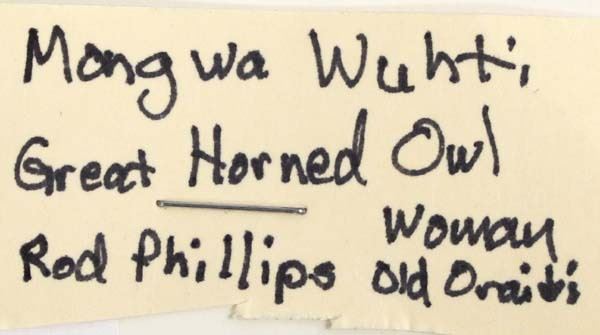 Mongwa Wuhti
Great Horned Owl
Woman
Rod Phillips Old Oraibi